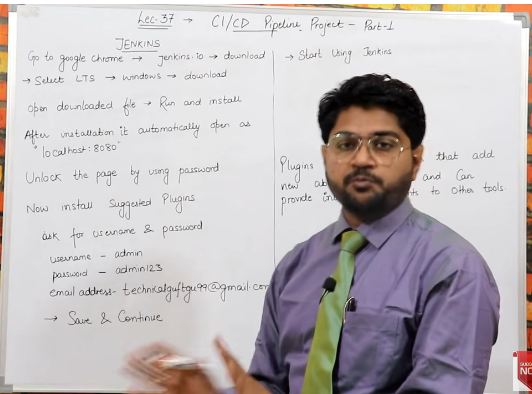 Lec-37 → CI/CD Pipeline Project - Part-1
JENKINS
Go to google chrome → jenkins.io → download
→ Select LTS → windows → download
Open downloaded file → Run and install
After installation it automatically open as
"localhost:8080"
Unlock the page by using password
Now install Suggested Plugins
ask for username & password
username - admin
password - admin123
email address- technicalguftgu99@gmail.com
→ Save & Continue
→ Start Using Jenkins
Plugins that add
new and Can
provide to Other tools.